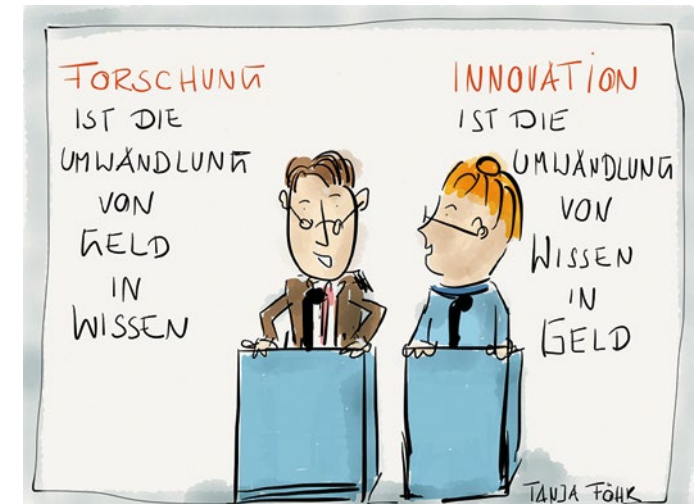 FORSCHUNG
IST DIE
UMWANDLUNG
VON
GELD
IN
WISSEN
INNOVATION
IST DIE
UMWANDLUNG
VON
WISSEN
IN
GELD
TANJA FÖHR